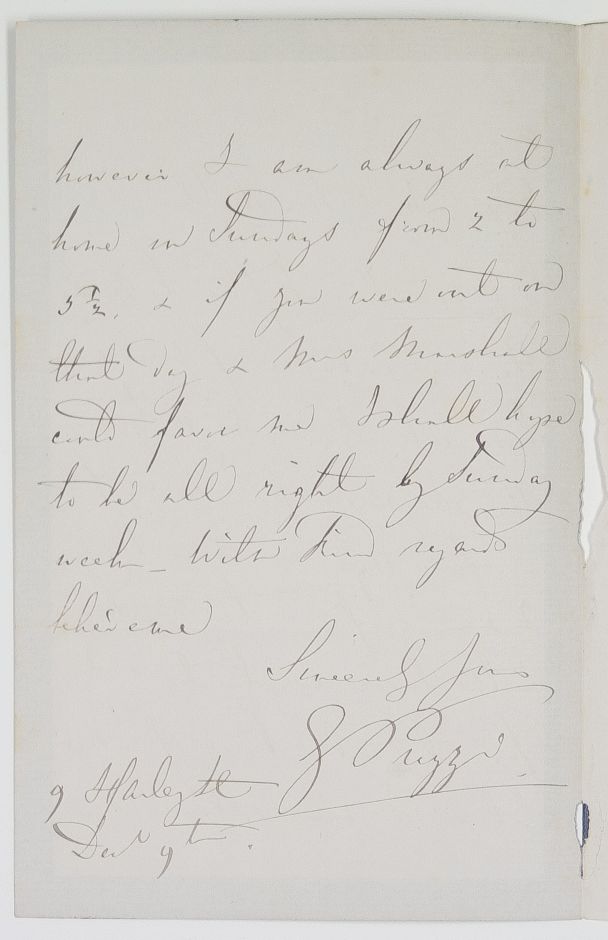 however I am always at
home on Sundays from 2 to
5 1/2, & if you were out on
that day & Mrs Marshall
could favor me I shall hope
to be all right by Sunday
week _ With Kind regards
believe me
Sincerely yrs
G Puzzi
9 Harley St
Decr 9th.